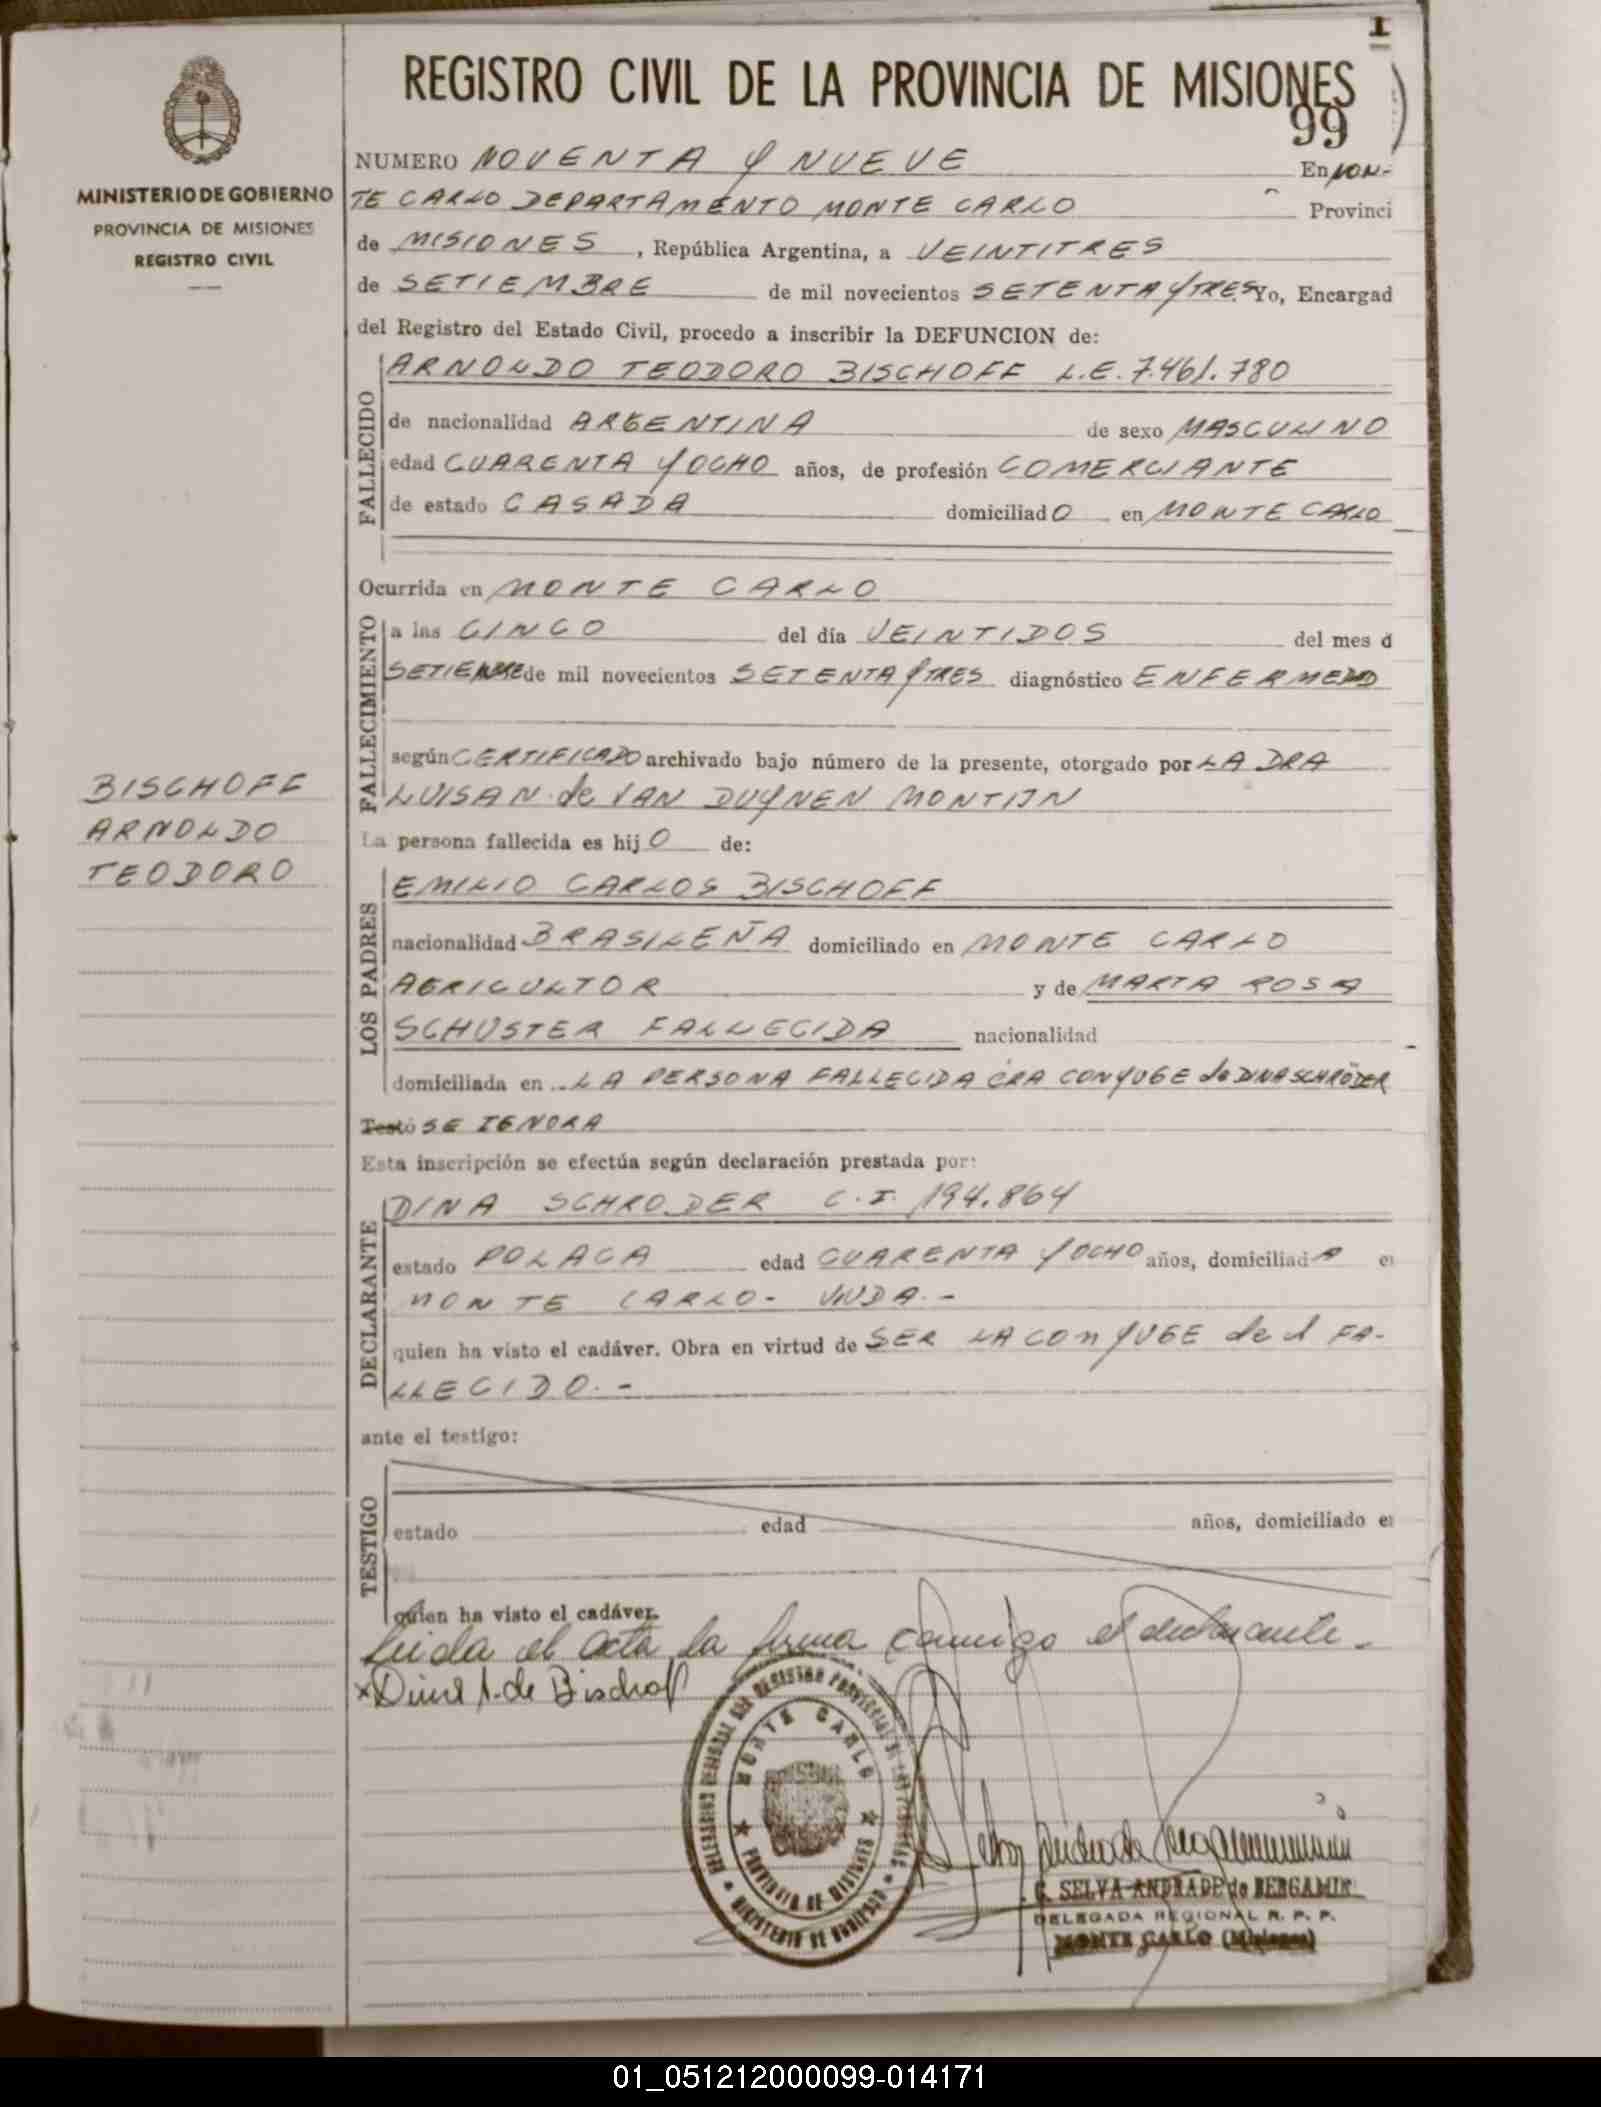 I
REGISTRO CIVIL DE LA PROVINCIA DE MISIONES
99
MINISTERIO DE GOBIERNO
PROVINCIA DE MISIONES
REGISTRO CIVIL
NUMERO NOVENTA Y NUEVE En MON-
TE CARLO DEPARTAMENTO MONTE CARLO Provinci
de MISIONES, República Argentina, a VEINTITRES
de SETIEMBRE de mil novecientos SETENTA Y TRES Yo, Encargad
del Registro del Estado Civil, procedo a inscribir la DEFUNCION de:
FALLECIDO
ARNOLDO TEODORO BISCHOFF L.E. 7.461.780
de nacionalidad ARGENTINA de sexo MASCULINO
edad CUARENTA Y OCHO años, de profesión COMERCIANTE
de estado CASADA domiciliado en MONTE CARLO
Ocurrida en MONTE CARLO
FALLECIMIENTO
a las CINCO del día VEINTIDOS del mes d
SETIEMBRE de mil novecientos SETENTA Y TRES diagnóstico ENFERMEDAD
según CERTIFICADO archivado bajo número de la presente, otorgado por LA DRA
LUISA N. de VAN DUYNEN MONTIJN
BISCHOFF
ARNOLDO
TEODORO
La persona fallecida es hijO de:
LOS PADRES
EMILIO CARLOS BISCHOFF
nacionalidad BRASILEÑA domiciliado en MONTE CARLO
AGRICULTOR y de MARTA ROSA
SCHUSTER FALLECIDA nacionalidad
domiciliada en LA PERSONA FALLECIDA ERA CONYUGE de DINA SCHRÖDER
Testó SE IGNORA
Esta inscripción se efectúa según declaración prestada por:
DECLARANTE
DINA SCHRODER C.I. 194.864
estado POLACA edad CUARENTA Y OCHO años, domiciliadA e
MONTE CARLO- VIUDA.-
quien ha visto el cadáver. Obra en virtud de SER LA CONYUGE del FA-
LLECIDO.-
ante el testigo:
TESTIGO
estado edad años, domiciliado e
quien ha visto el cadáver.
Leida el acta, la firma conmigo el declarante.
x Dina S. de Bischoff
DELEGACION REGIONAL DEL REGISTRO PROVINCIAL DE LAS PERSONAS
MONTE CARLO
PROVINCIA DE MISIONES
MINISTERIO DE GOBIERNO
C. SELVA ANDRADE de BERGAMIN
DELEGADA REGIONAL R. P. P.
MONTE CARLO (Misiones)
01_051212000099-014171